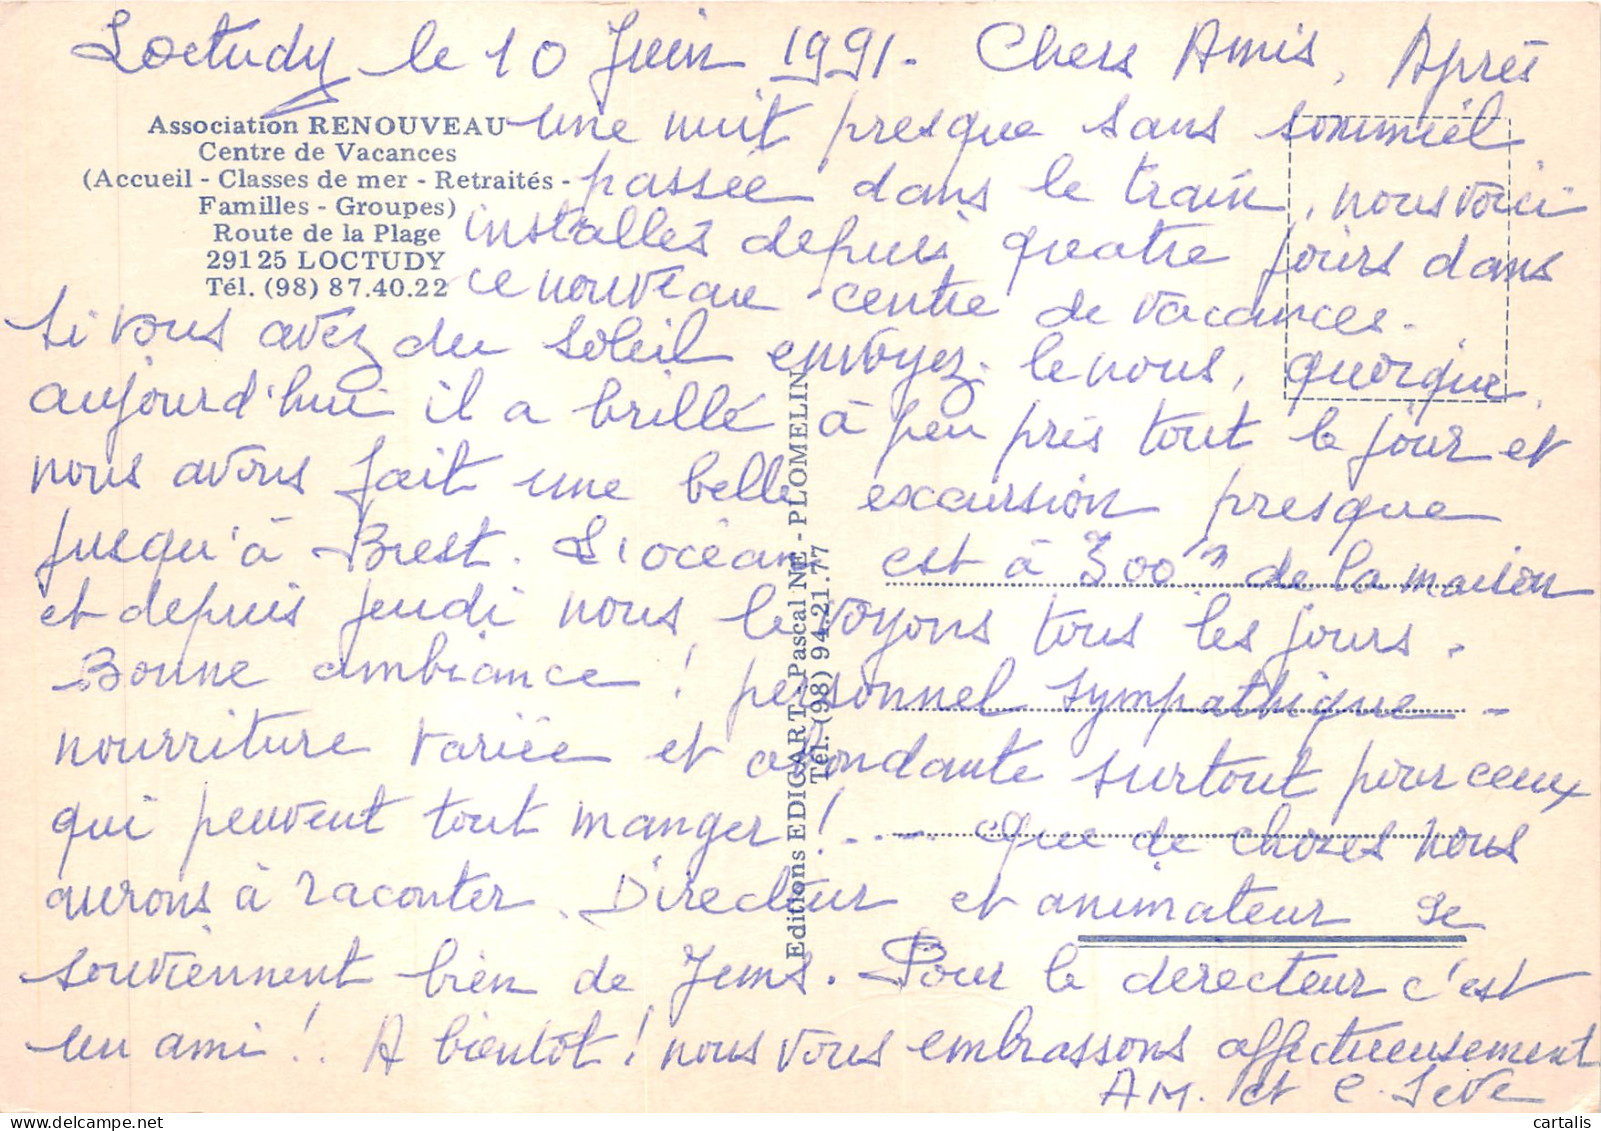 Loctudy le 10 Juin 1991. Chers Amis, Après
Association RENOUVEAU
Centre de Vacances
(Accueil - Classes de mer - Retraités -
Familles - Groupes)
Route de la Plage
29125 LOCTUDY
Tél. (98) 87.40.22
une nuit presque sans sommeil
passée dans le train, nous voici
installés depuis quatre jours dans
ce nouveau centre de vacances.
Si vous avez du soleil envoyez-le nous, quoique
aujourd'hui il a brillé à peu près tout le jour et
nous avons fait une belle excursion presque
jusqu'à Brest. L'océan est à 300 m de la maison
et depuis jeudi nous le voyons tous les jours.
Bonne ambiance ! personnel sympathique -
nourriture variée et abondante surtout pour ceux
qui peuvent tout manger ! ... Que de choses nous
aurons à raconter. Directeur et animateur se
souviennent bien de Jems. Pour le derecteur c'est
un ami !! A bientôt ! nous vous embrassons affectueusement
AM. et C. Seve
Editions EDIGART Pascal NE - PLOMELIN
Tél. (98) 94.21.77
cartalis.com